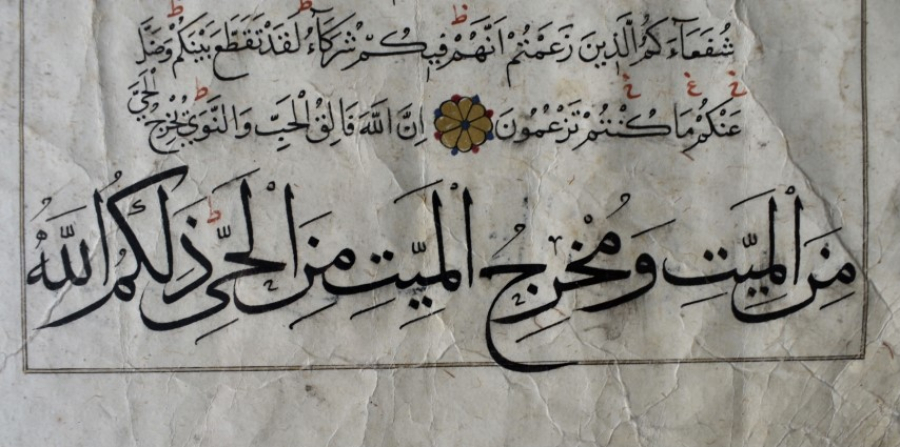 شُفَعَآءَكُمُ الَّذِينَ زَعَمْتُمْ اَنَّهُمْ فِيكُمْ شُرَكَآءُ لَقَدْ تَقَطَّعَ بَيْنَكُمْ وَضَلَّ
عَنْكُمْ مَا كُنْتُمْ تَزْعُمُونَ اِنَّ اللّٰهَ فَالِقُ الْحَبِّ وَالنَّوَى يُخْرِجُ الْحَيَّ
مِنَ الْمَيِّتِ وَمُخْرِجُ الْمَيِّتِ مِنَ الْحَيِّ ذٰلِكُمُ اللّٰهُ